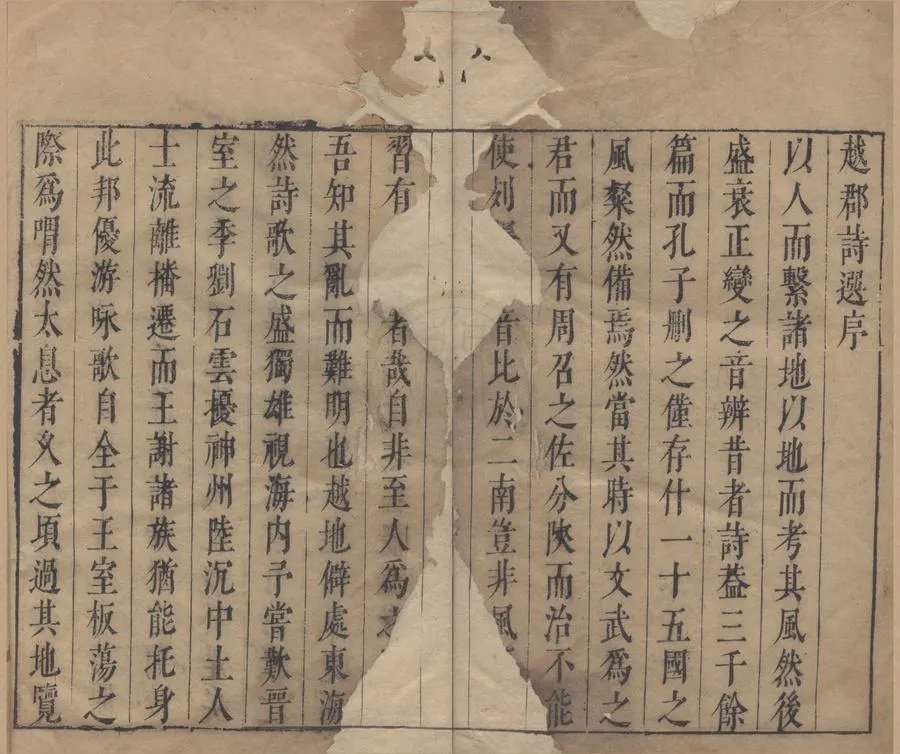 越郡詩選序
以人而繫諸地以地而考其風然後
盛衰正變之音辨昔者詩葢三千餘
篇而孔子刪之僅存什一十五國之
風粲然備焉然當其時以文武爲之
君而又有周召之佐分陝而治不能
使列音比於二南豈非風
習有者哉自非至人爲之
吾知其亂而難明也越地僻處東海
然詩歌之盛獨雄視海內予嘗歎晉
室之季劉石雲擾神州陸沉中土人
士流離播遷而王謝諸族猶能托身
此邦優游咏歌自全于王室板蕩之
際爲喟然太息者久之頃過其地覽